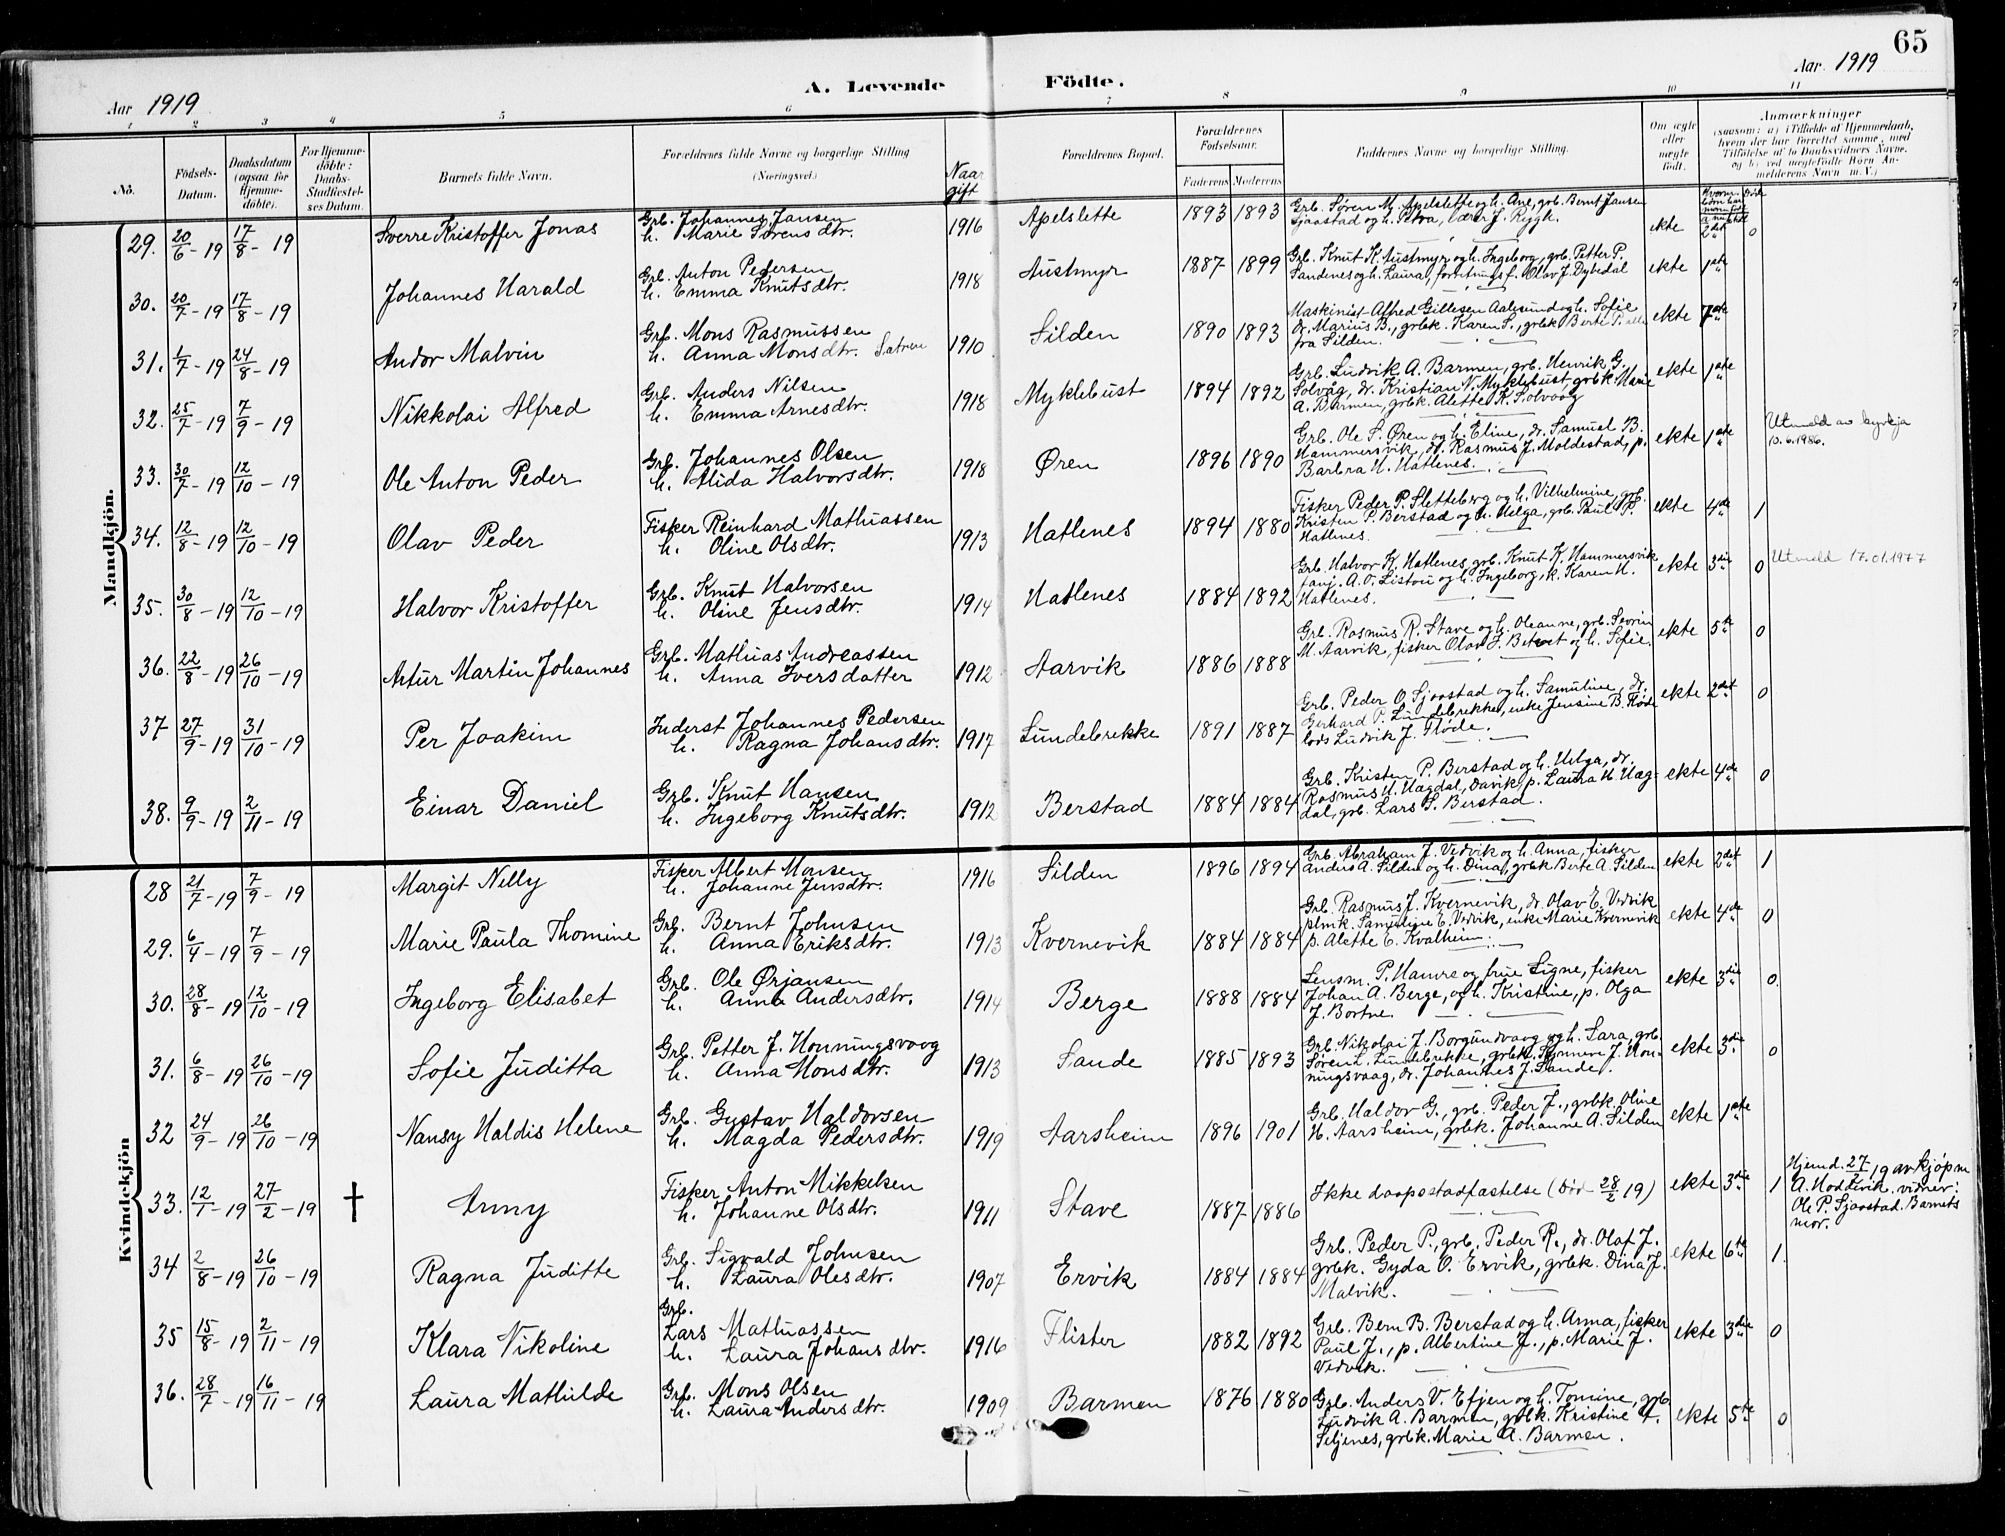 65
Aar 1919
A. Levende Födte.
Aar 1919
1 2 3 4 5 6 7 8 9 10 11
No.
Födsels-Datum.
Daabsdatum (ogsaa for Hjemme-döbte).
For Hjemme-döbte: Daabs-Stadfæstel-ses Datum.
Barnets fulde Navn.
Forældrenes fulde Navne og borgerlige Stilling (Næringsvei.)
Naar gift
Forældrenes Bopæl.
Forældrenes Födselsaar.
Faderens Moderens
Faddernes Navne og borgerlige Stilling.
Om ægte eller uægte født.
Anmærkninger
(saasom: a) i Tilfælde af Hjemmedaab, hvem der har forrettet samme, med Tilføielse af to Daabsvidners Navne, og b) ved uægtefødte Børn An-melderens Navn m. V.)
Mandkjön.
29. 20/6 - 19 17/8 - 19 Sverre Kristoffer Jonas Grb. Johannes Jansen h. Marie Sørensdtr. 1916 Apelslette 1893 1893 Grb. Søren M. Apelslette og h. Ane, grb. Bernt Jansen Sjaastad og h. Petra, lærer J. Rygg. ekte 2det 0
30. 20/7 - 19 17/8 - 19 Johannes Harald Grb. Anton Pedersen h. Emma Knutsdtr. 1918 Austmyr 1887 1899 Grb. Knut K. Austmyr og h. Ingeborg, grb. Petter P. Sandenes og h. Laura, Olav J. Dybedal ekte 1ste
31. 1/7 - 19 24/8 - 19 Andor Malvin Grb. Mons Rasmussen h. Anna Monsdtr. Satren 1910 Silden 1890 1893 Maskinist Alfred Gillesen Aalesund og h. Sofie dr. Marius B., grbk. Karen S., grbk Berte P. alle fra Silden. ekte 7de
32. 25/7 - 19 7/9 - 19 Nikkolai Alfred Grb. Anders Nilsen h. Emma Arnesdtr. 1918 Myklebust 1894 1892 Grb. Ludvik A. Barmen, grb. Henrik G. Solvåg, dr. Kristian N. Myklebust, grbk Marie A. Barmen, grbk. Alette K. Solvaag ekte 1ste
33. 30/7 - 19 12/10 - 19 Ole Anton Peder Grb. Johannes Olsen h. Alida Halvorsdtr. 1918 Øren 1896 1890 Grb. Ole S. Øren og h. Eline, dr. Samuel B. Hammersvik, dr. Rasmus J. Moldestad, p. Barbra H. Hatlenes. ekte 1ste Utmeld av kyrkja 10.6.1986.
34. 12/8 - 19 12/10 - 19 Olav Peder Fisker Reinhard Mathiassen h. Oline Olsdtr. 1913 Hatlenes 1894 1880 Fisker Peder P. Sletteberg og h. Vilhelmine, grb. Kristen P. Berstad og h. Helga, grb. Paul P. Hatlenes. ekte 4de 1
35. 30/8 - 19 12/10 - 19 Halvor Kristoffer Grb. Knut Halvorsen h. Oline Jensdtr. 1914 Hatlenes 1884 1892 Grb. Halvor K. Hatlenes, grb. Knut K. Hammersvik, A. O. Liston og h. Ingeborg, k. Karen H. Hatlenes. ekte 3die 0 Utmeld 17.01.1977
36. 22/8 - 19 26/10 - 19 Artur Martin Johannes Grb. Mathias Andreassen h. Anna Iversdatter 1912 Aarvik 1886 1888 Grb. Rasmus R. Stave og h. Oleanne, grb. Severin M. Aarvik, fisker Olav J. og h. Sofie. ekte 5te 0
37 27/9 - 19 31/10 - 19 Per Joakim Inderst Johannes Pedersen h. Ragna Johansdtr. 1917 Lundebrekke 1891 1887 Grb. Peder O. Sjaastad og h. Samuline, dr. Gerhard P. Lundebrekke, enke Jensine B. Fløde lods Ludvik J. Fløde. ekte 2det 0
38. 9/9 - 19 2/11 - 19 Einar Daniel Grb. Knut Hansen h. Ingeborg Knutsdtr. 1912 Berstad 1884 1884 Grb. Kristen P. Berstad og h. Helga, dr. Rasmus H. Hagdal, Davik, p. Laura H. Hag-dal, grb. Lars S. Berstad. ekte 4de 0
Kvindekjön
28 21/7 - 19 7/9 - 19 Margit Nelly Fisker Albert Monsen h. Johanne Jensdtr. 1916 Silden 1896 1894 Grb. Abraham J. Vedvik og h. Anna, fisker Anders A. Silden og h. Dina, grbk Berte A. Silden ekte 2det 1
29. 6/4 - 19 7/9 - 19 Marie Paula Thomine Grb. Bernt Johnsen h. Anna Eriksdtr. 1913 Kvernevik 1884 1884 Grb. Rasmus J. Kvernevik, dr. Olav E. Vedvik plmk. Samuline E. Vedvik, enke Marie Kvernevik p. Alette E. Kvalheim. ekte 4de 0
30. 28/8 - 19 12/10 - 19 Ingeborg Elisabet Grb. Ole Ørjansen h. Anna Andersdtr. 1914 Berge 1888 1884 Lensm. P. Hamre og frue Signe, fisker Johan A. Berge, og h. Kristine, p. Olga J. Bortne. ekte 3die 0.
31. 6/8 - 19 26/10 - 19 Sofie Juditta Grb. Petter J. Honningsvaag h. Anna Monsdtr. 1913 Sande 1885 1893 Grb. Nikolai J. Borgundvaag og h. Sara, grb. Søren L. Lundebrekke, grbk. Synneve J. Hon-ningsvaag, dr. Johannes J. Sande. ekte 3die 0
32 24/9 - 19 26/10 - 19 Nansy Haldis Helene Grb. Gustav Haldorsen h. Magda Pedersdtr. 1919 Aarsheim 1896 1901 Grb. Haldor G., grb. Peder J., grbk. Oline H. Aarsheim, grbk. Johanne A. Silden ekte 1ste
33. 12/1 - 19 27/2 - 19 † Anny Fisker Anton Mikkelsen h. Johanne Olsdtr. 1911 Stave 1887 1886 Ikke daapsstadfæstelse (Död 28/2 19) ekte 3die 1 Hjemd. 27/2 19 av kjöpm A. Hoddevik. vidner: Ole P. Sjaastad. Barnets mor.
34 2/8 - 19 26/10 - 19 Ragna Juditte Grb. Sigvald Johnsen h. Laura Olesdtr. 1907 Ervik 1884 1884 Grb. Peder P., grb. Peder R., dr. Olaf J. grbk. Gyda O. Ervik, grbk. Dina J. Malvik. ekte 6te 1.
35 15/8 - 19 2/11 - 19 Klara Nikoline Grb. Lars Mathiassen h. Laura Johansdtr. 1916 Flister 1882 1892 Grb. Bern B. Berstad og h. Anna, fisker Paul J., p. Albertine J., p. Marie J. Vedvik. ekte 3die 0
36. 28/7 - 19 16/11 - 19 Laura Mathilde Grb. Mons Olsen h. Laura Andersdtr. 1909 Barmen 1876 1880 Grb. Anders V. Eltjen og h. Tomine, grb. Ludvik A. Barmen, grbk. Kristine A. Seljenes, grbk. Marie A. Barmen. ekte 5te 0